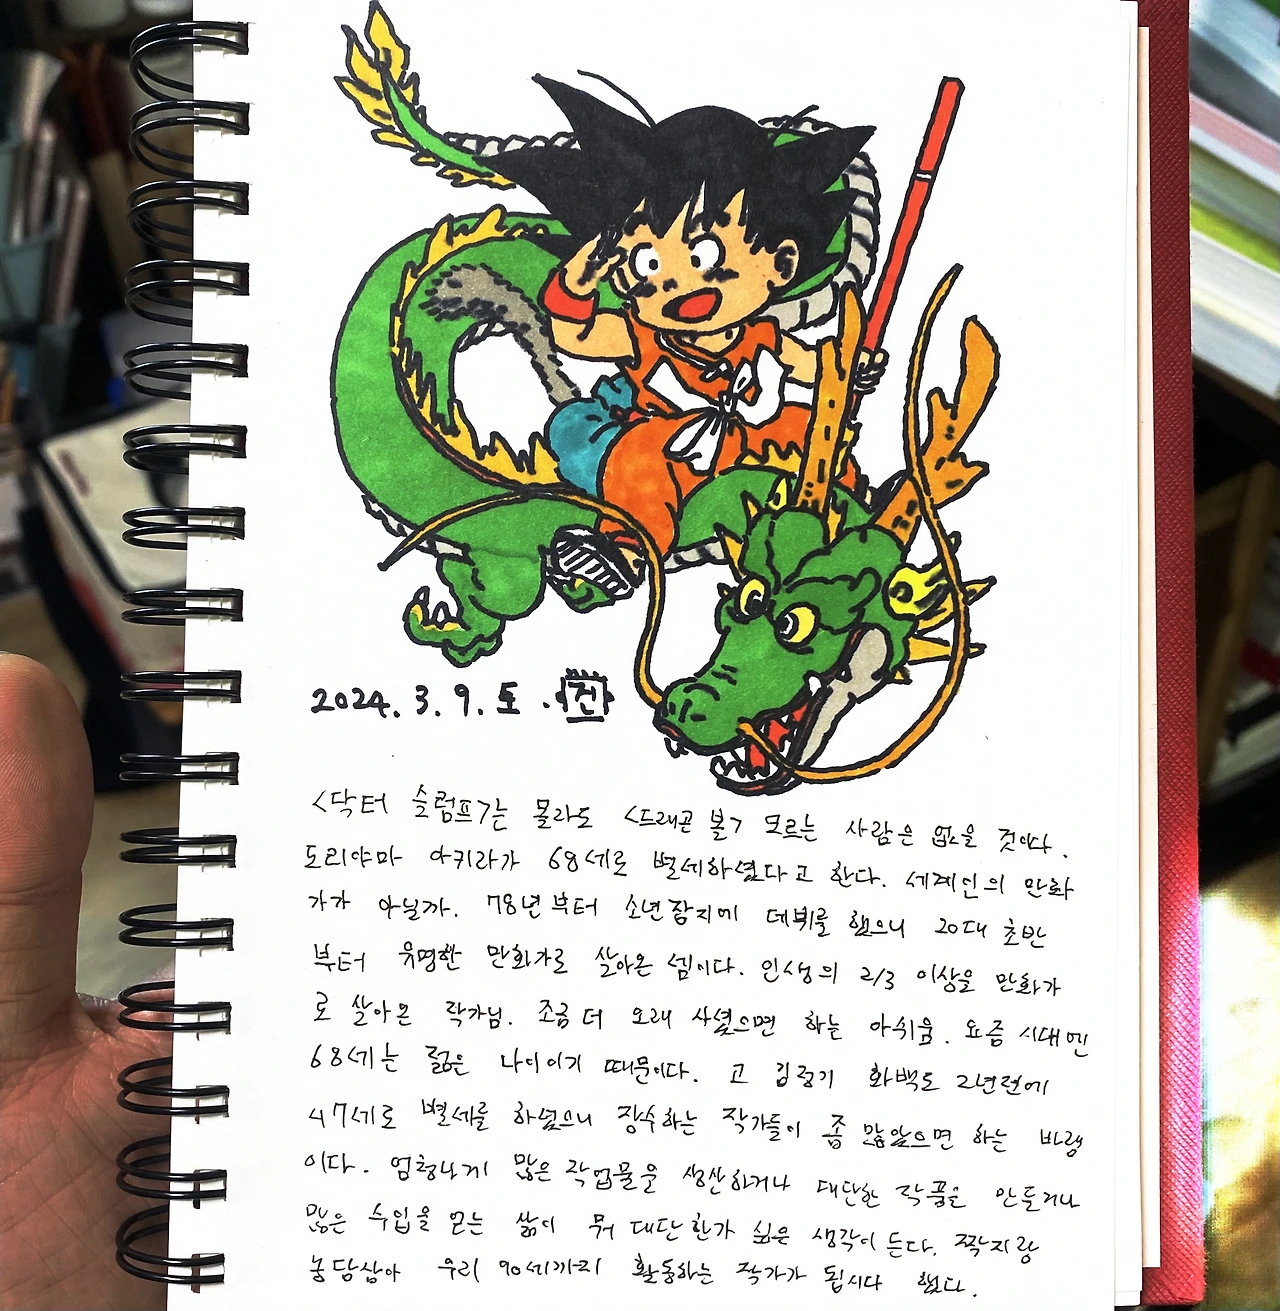 2024. 3. 9. 토. 진
<닥터 슬럼프>는 몰라도 <드래곤 볼> 모르는 사람은 없을 것이다.
도리야마 아키라가 68세로 별세하셨다고 한다. 세계인의 만화
가가 아닐까. 78년부터 소년잡지에 데뷔를 했으니 20대 초반
부터 유명한 만화가로 살아온 셈이다. 인생의 2/3 이상을 만화가
로 살아온 작가님. 조금 더 오래 사셨으면 하는 아쉬움. 요즘 시대엔
68세는 젊은 나이이기 때문이다. 고 김정기 화백도 2년전에
47세로 별세를 하셨으니 장수하는 작가들이 좀 많았으면 하는 바램
이다. 엄청나게 많은 작업물을 생산하거나 대단한 작품을 만들거나
많은 수입을 얻는 삶이 뭐 대단한가 싶은 생각이 든다. 짝지랑
농담삼아 우리 90세까지 활동하는 작가가 됩시다 했다.